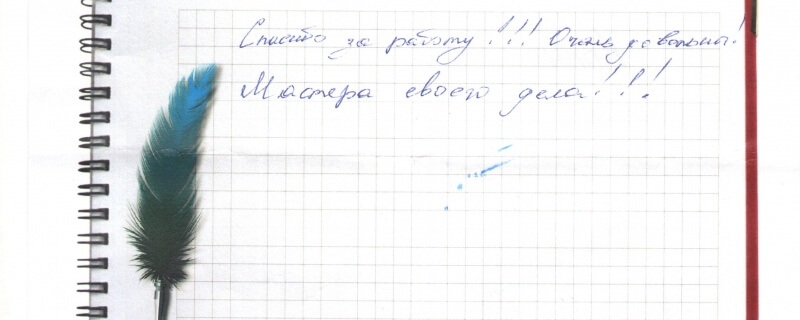 Спасибо за работу!!! Очень довольны!
Мастера своего дела!!!